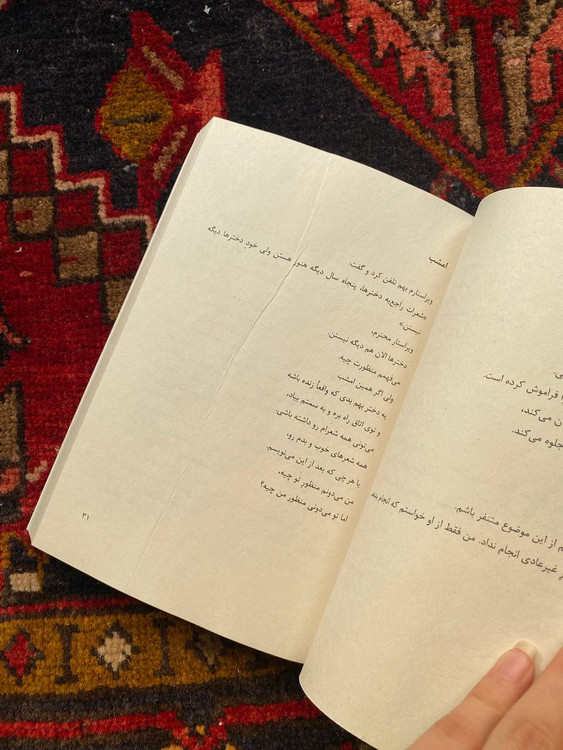 امشب
ویراستارم بهم تلفن کرد و گفت:
«شعرات راجع‌به دخترها، پنجاه سال دیگه هنوز هستن ولی خودِ دخترها دیگه
نیستن.»
ویراستار محترم،
دخترها الان هم دیگه نیستن.
می‌فهمم منظورت چیه.
ولی اگر همین امشب
یه دختر بهم بدی که واقعاً زنده باشه
و توی اتاق راه بره و به سمتم بیاد،
می‌تونی همه شعرام رو داشته باشی
همه شعرهای خوب و بدم رو.
یا هر چی که بعد از این می‌نویسم.
من می‌دونم منظور تو چیه،
اما تو می‌دونی منظور من چیه؟
۳۱
فراموش کرده است.
می‌کند،
جلوه می‌کند.
از این موضوع متنفر باشم.
غیرعادی انجام نداد. من فقط از او خواستم که انجام بده